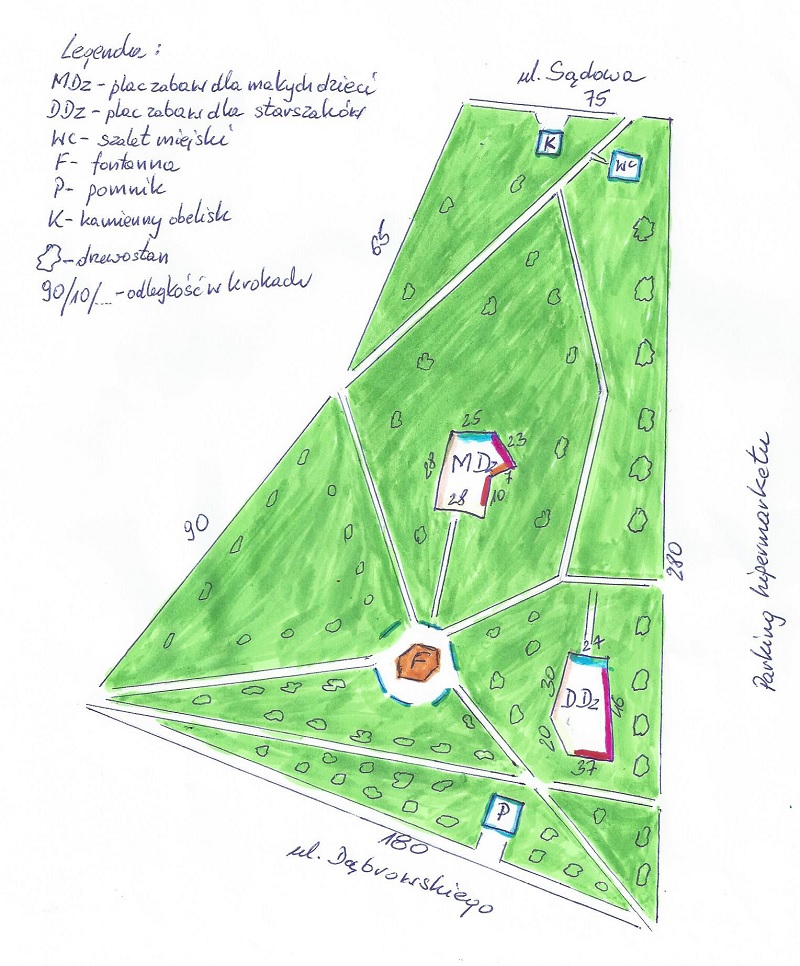 Legenda:
MDz - plac zabaw dla małych dzieci
DDz - plac zabaw dla starszaków
WC - szalet miejski
F - fontanna
P - pomnik
K - kamienny obelisk
- drzewostan
90/10/... - odległość w krokach
ul. Sądowa
75
K
WC
65
25
23
28
MDz
7
28
10
90
280
Parking hipermarketu
F
27
30
DDz
46
20
37
P
180
ul. Dąbrowskiego